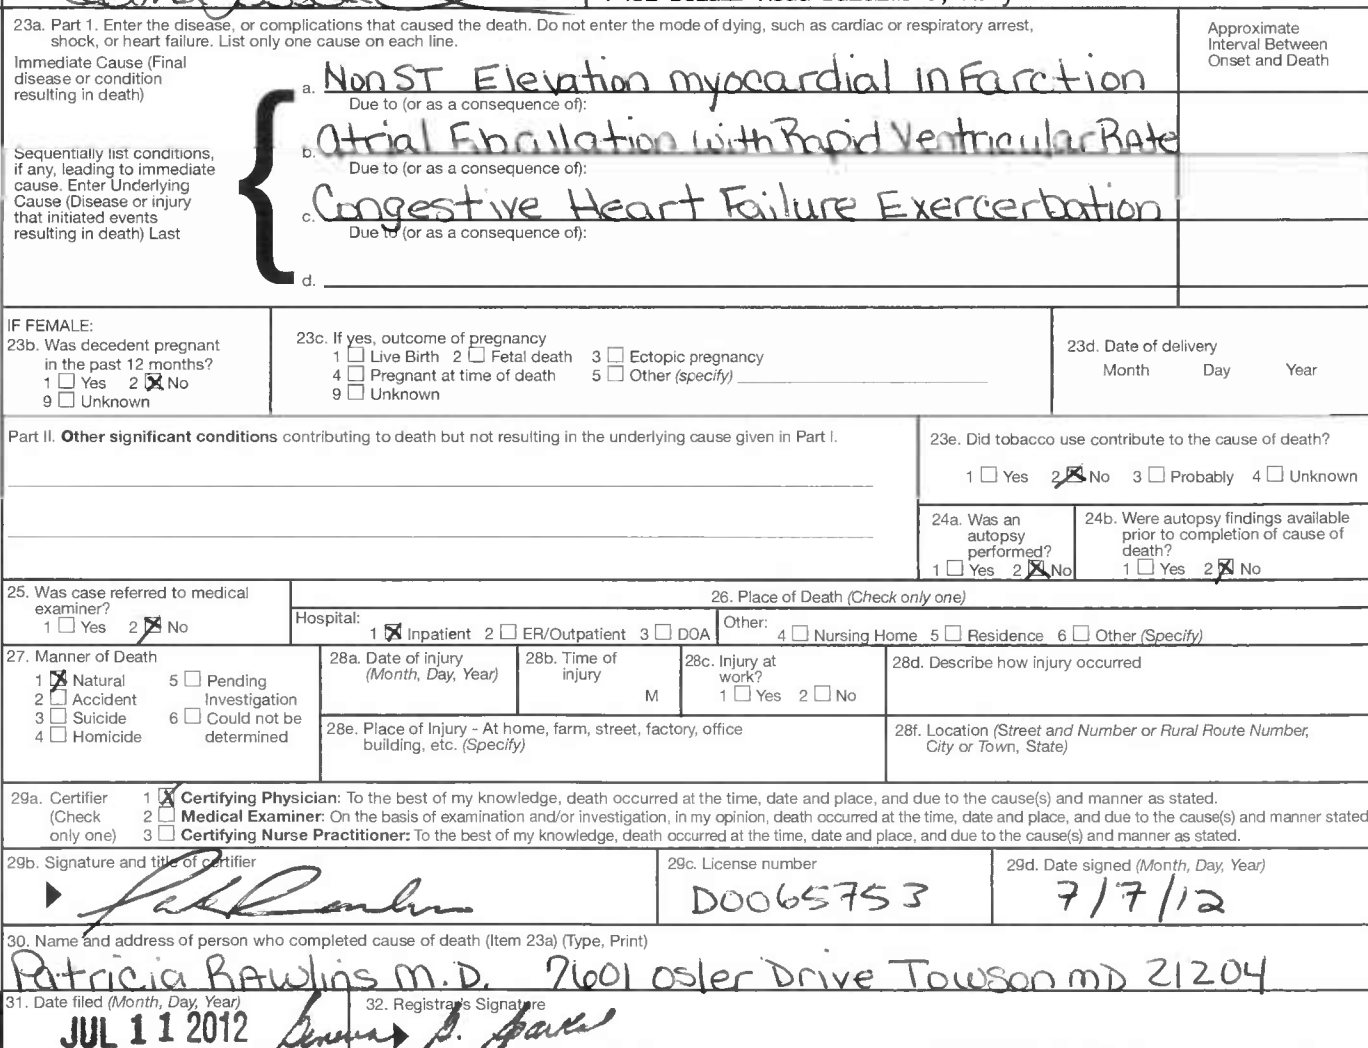 23a. Part 1. Enter the disease, or complications that caused the death. Do not enter the mode of dying, such as cardiac or respiratory arrest,
shock, or heart failure. List only one cause on each line.
Approximate
Interval Between
Onset and Death
Immediate Cause (Final
disease or condition
resulting in death)
a. Non ST Elevation myocardial inFarction
Due to (or as a consequence of):
Sequentially list conditions,
if any, leading to immediate
cause. Enter Underlying
Cause (Disease or injury
that initiated events
resulting in death) Last
b. Atrial Fibrillation with Rapid Ventricular Rate
Due to (or as a consequence of):
c. Congestive Heart Failure Exercerbation
Due to (or as a consequence of):
d.
IF FEMALE:
23b. Was decedent pregnant
in the past 12 months?
1 ☐ Yes 2 ☒ No
9 ☐ Unknown
23c. If yes, outcome of pregnancy
1 ☐ Live Birth 2 ☐ Fetal death 3 ☐ Ectopic pregnancy
4 ☐ Pregnant at time of death 5 ☐ Other (specify)
9 ☐ Unknown
23d. Date of delivery
Month Day Year
Part II. Other significant conditions contributing to death but not resulting in the underlying cause given in Part I.
23e. Did tobacco use contribute to the cause of death?
1 ☐ Yes 2 ☒ No 3 ☐ Probably 4 ☐ Unknown
24a. Was an
autopsy
performed?
1 ☐ Yes 2 ☒ No
24b. Were autopsy findings available
prior to completion of cause of
death?
1 ☐ Yes 2 ☒ No
25. Was case referred to medical
examiner?
1 ☐ Yes 2 ☒ No
26. Place of Death (Check only one)
Hospital: 1 ☒ Inpatient 2 ☐ ER/Outpatient 3 ☐ DOA
Other: 4 ☐ Nursing Home 5 ☐ Residence 6 ☐ Other (Specify)
27. Manner of Death
1 ☒ Natural 5 ☐ Pending
2 ☐ Accident Investigation
3 ☐ Suicide 6 ☐ Could not be
4 ☐ Homicide determined
28a. Date of injury
(Month, Day, Year)
28b. Time of
injury
M
28c. Injury at
work?
1 ☐ Yes 2 ☐ No
28d. Describe how injury occurred
28e. Place of Injury - At home, farm, street, factory, office
building, etc. (Specify)
28f. Location (Street and Number or Rural Route Number,
City or Town, State)
29a. Certifier
(Check
only one)
1 ☒ Certifying Physician: To the best of my knowledge, death occurred at the time, date and place, and due to the cause(s) and manner as stated.
2 ☐ Medical Examiner: On the basis of examination and/or investigation, in my opinion, death occurred at the time, date and place, and due to the cause(s) and manner stated
3 ☐ Certifying Nurse Practitioner: To the best of my knowledge, death occurred at the time, date and place, and due to the cause(s) and manner as stated.
29b. Signature and title of certifier
29c. License number
D0065753
29d. Date signed (Month, Day, Year)
7/7/12
30. Name and address of person who completed cause of death (Item 23a) (Type, Print)
Patricia Rawlins M.D. 7601 Osler Drive Towson MD 21204
31. Date filed (Month, Day, Year)
JUL 11 2012
32. Registrar's Signature